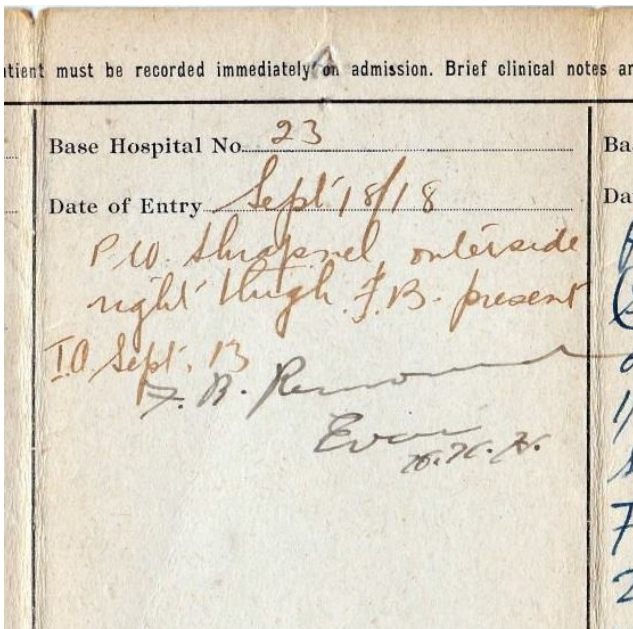 tient must be recorded immediately on admission. Brief clinical notes ar
Base Hospital No. 23
Date of Entry Sept 18/18
P.W. Shrapnel, outerside
right thigh. F.B. present
I.O. Sept. 13
F. B. Removed
Evac
Ba
Da